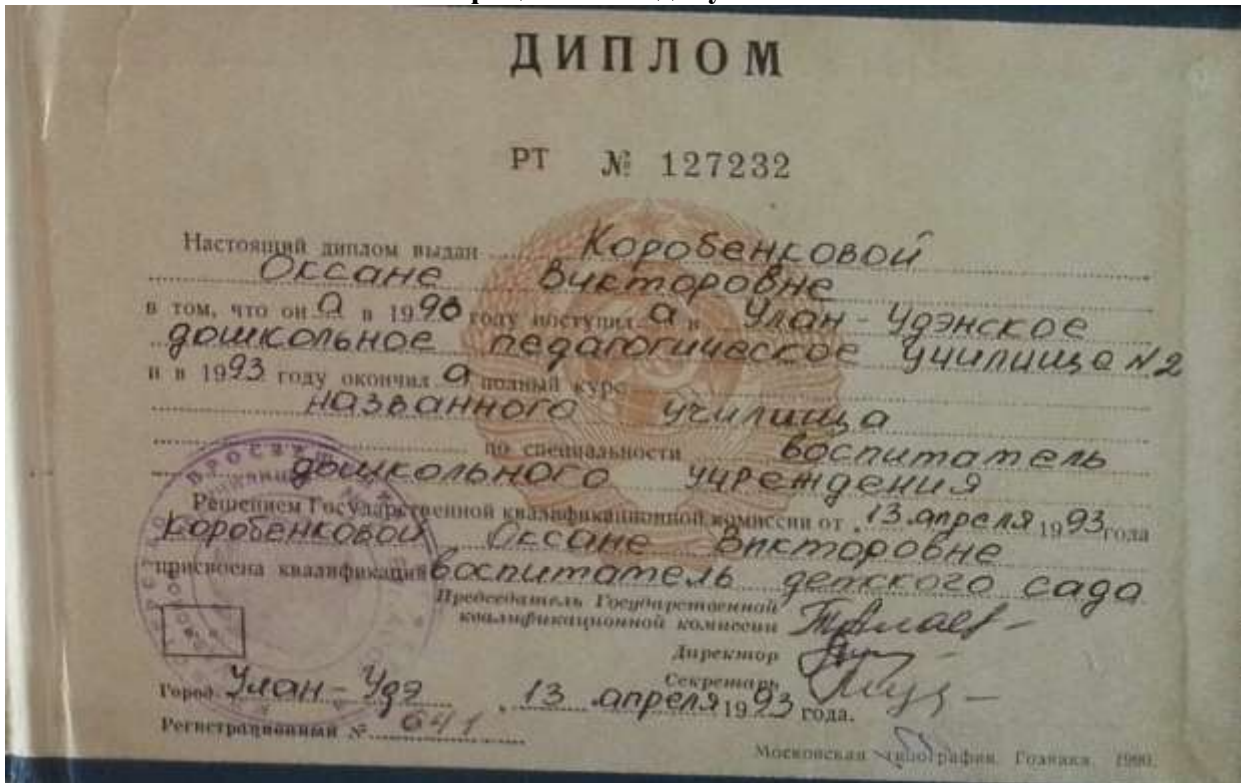 ДИПЛОМ
РТ № 127232
Настоящий диплом выдан Коробенковой
Оксане Викторовне
в том, что он а в 1990 году поступил а в Улан-Удэнское
дошкольное педагогическое училище №2
и в 1993 году окончил а полный курс
названного училища
по специальности воспитатель
дошкольного учреждения
Решением Государственной квалификационной комиссии от 13 апреля 1993 года
Коробенковой Оксане Викторовне
присвоена квалификация воспитатель детского сада
Председатель Государственной
квалификационной комиссии
Директор
Секретарь
Город Улан-Удэ 13 апреля 1993 года.
Регистрационный № 641
Московская типография Гознака. 1990.